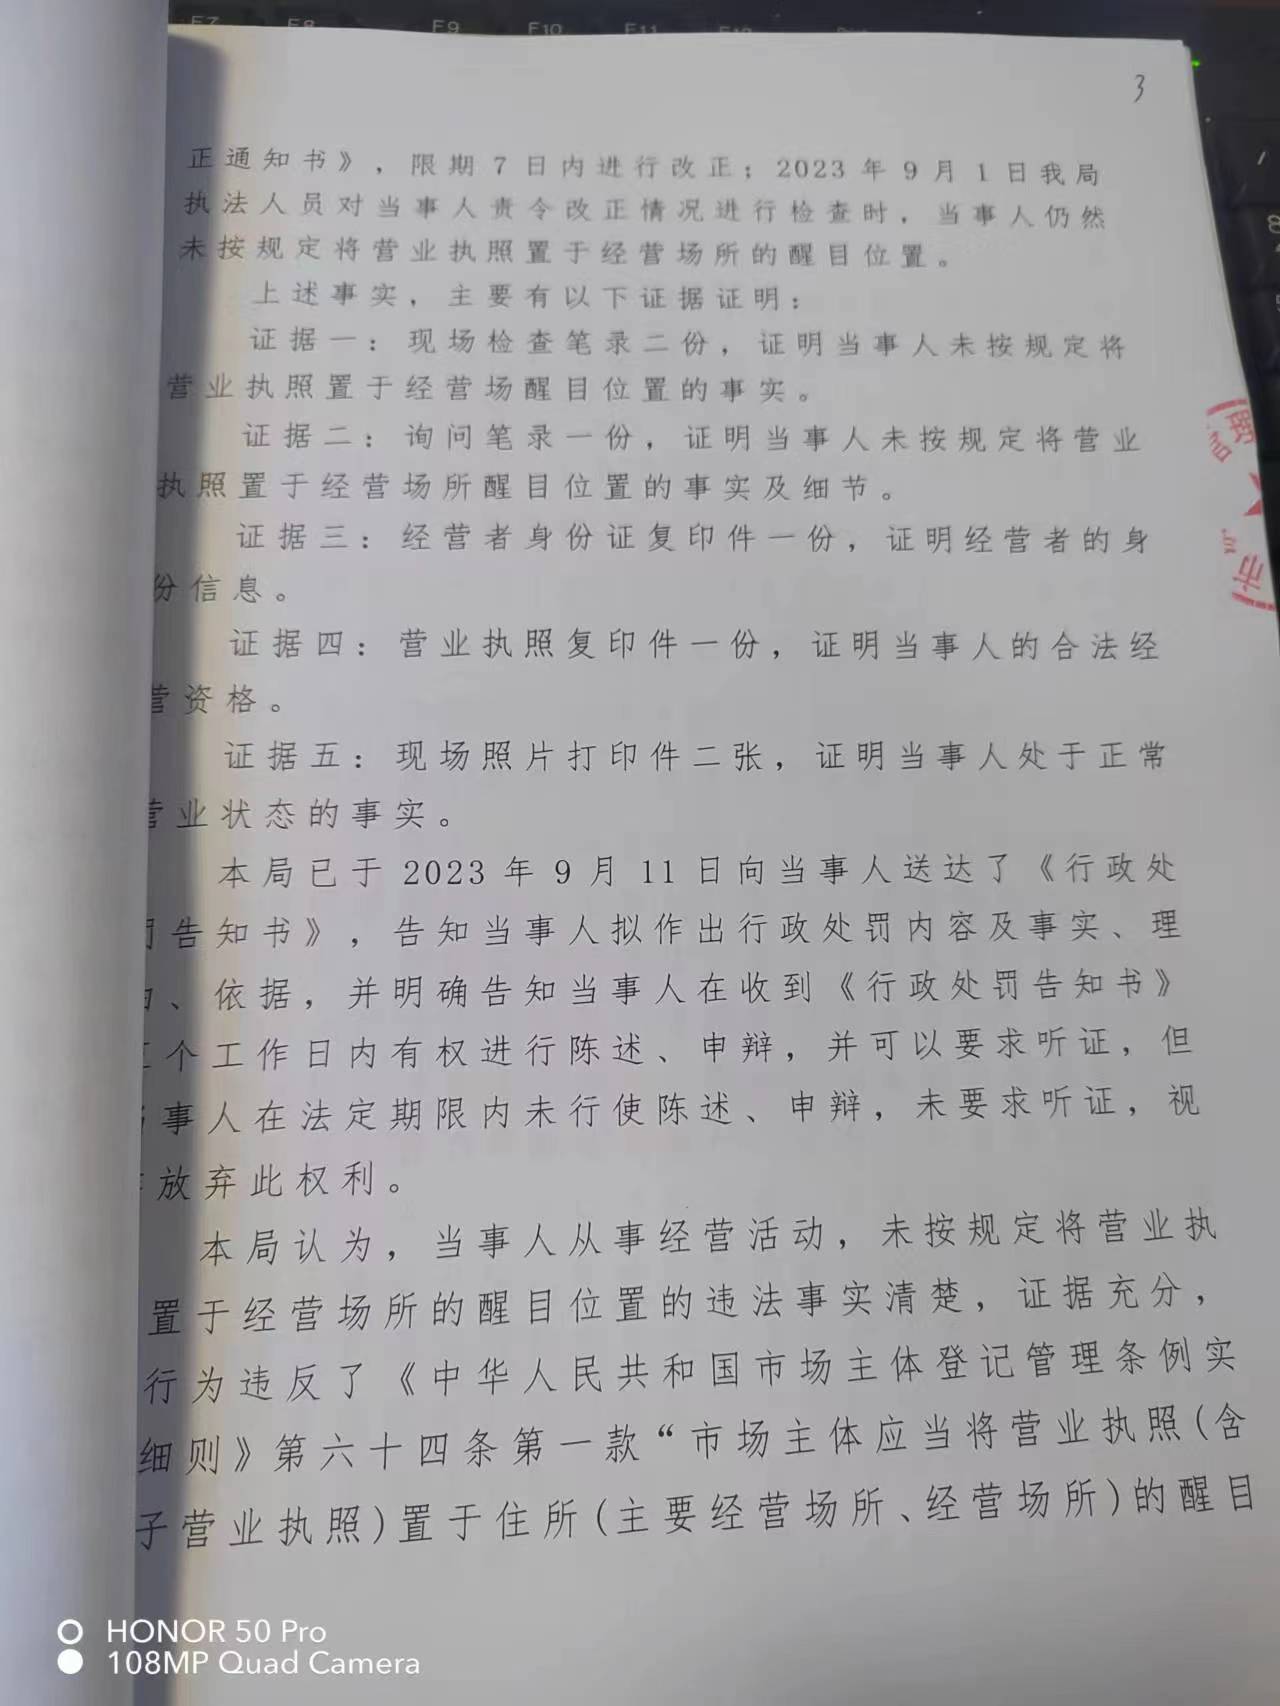 F7 F8 F9 F10 F11 F12
3
正通知书》，限期7日内进行改正；2023年9月1日我局
执法人员对当事人责令改正情况进行检查时，当事人仍然
未按规定将营业执照置于经营场所的醒目位置。
上述事实，主要有以下证据证明：
证据一：现场检查笔录二份，证明当事人未按规定将
营业执照置于经营场醒目位置的事实。
证据二：询问笔录一份，证明当事人未按规定将营业
执照置于经营场所醒目位置的事实及细节。
证据三：经营者身份证复印件一份，证明经营者的身
份信息。
证据四：营业执照复印件一份，证明当事人的合法经
营资格。
证据五：现场照片打印件二张，证明当事人处于正常
营业状态的事实。
本局已于2023年9月11日向当事人送达了《行政处
罚告知书》，告知当事人拟作出行政处罚内容及事实、理
由、依据，并明确告知当事人在收到《行政处罚告知书》
个工作日内有权进行陈述、申辩，并可以要求听证，但
事人在法定期限内未行使陈述、申辩，未要求听证，视
放弃此权利。
本局认为，当事人从事经营活动，未按规定将营业执
置于经营场所的醒目位置的违法事实清楚，证据充分，
行为违反了《中华人民共和国市场主体登记管理条例实
细则》第六十四条第一款“市场主体应当将营业执照(含
子营业执照)置于住所(主要经营场所、经营场所)的醒目
理
市
HONOR 50 Pro
108MP Quad Camera